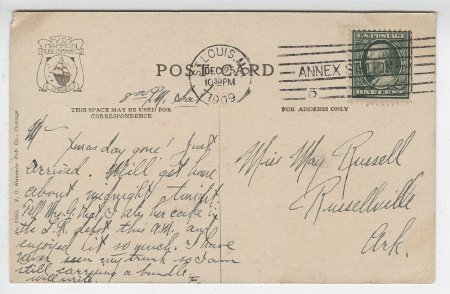 V.O.
HAMMON
PUBLISHING CO.
POST CARD
ST. LOUIS, MO.
DEC 25
10 30 PM
1909
ANNEX STA
3
U.S. POSTAGE
ONE CENT
8 00 P.M. Sat
THIS SPACE MAY BE USED FOR
CORRESPONDENCE
FOR ADDRESS ONLY
M—
Xmas day gone! Just
arrived. Will get home
about midnight tonight.
Tell Mrs. that I ate her cake in
the depot this A.M. and
enjoyed it so much. I have
never seen my trunk so I am
still carrying a bundle.
Will write.
Miss May Russell
Russellville
Ark.
V. O. Hammon Pub. Co., Chicago